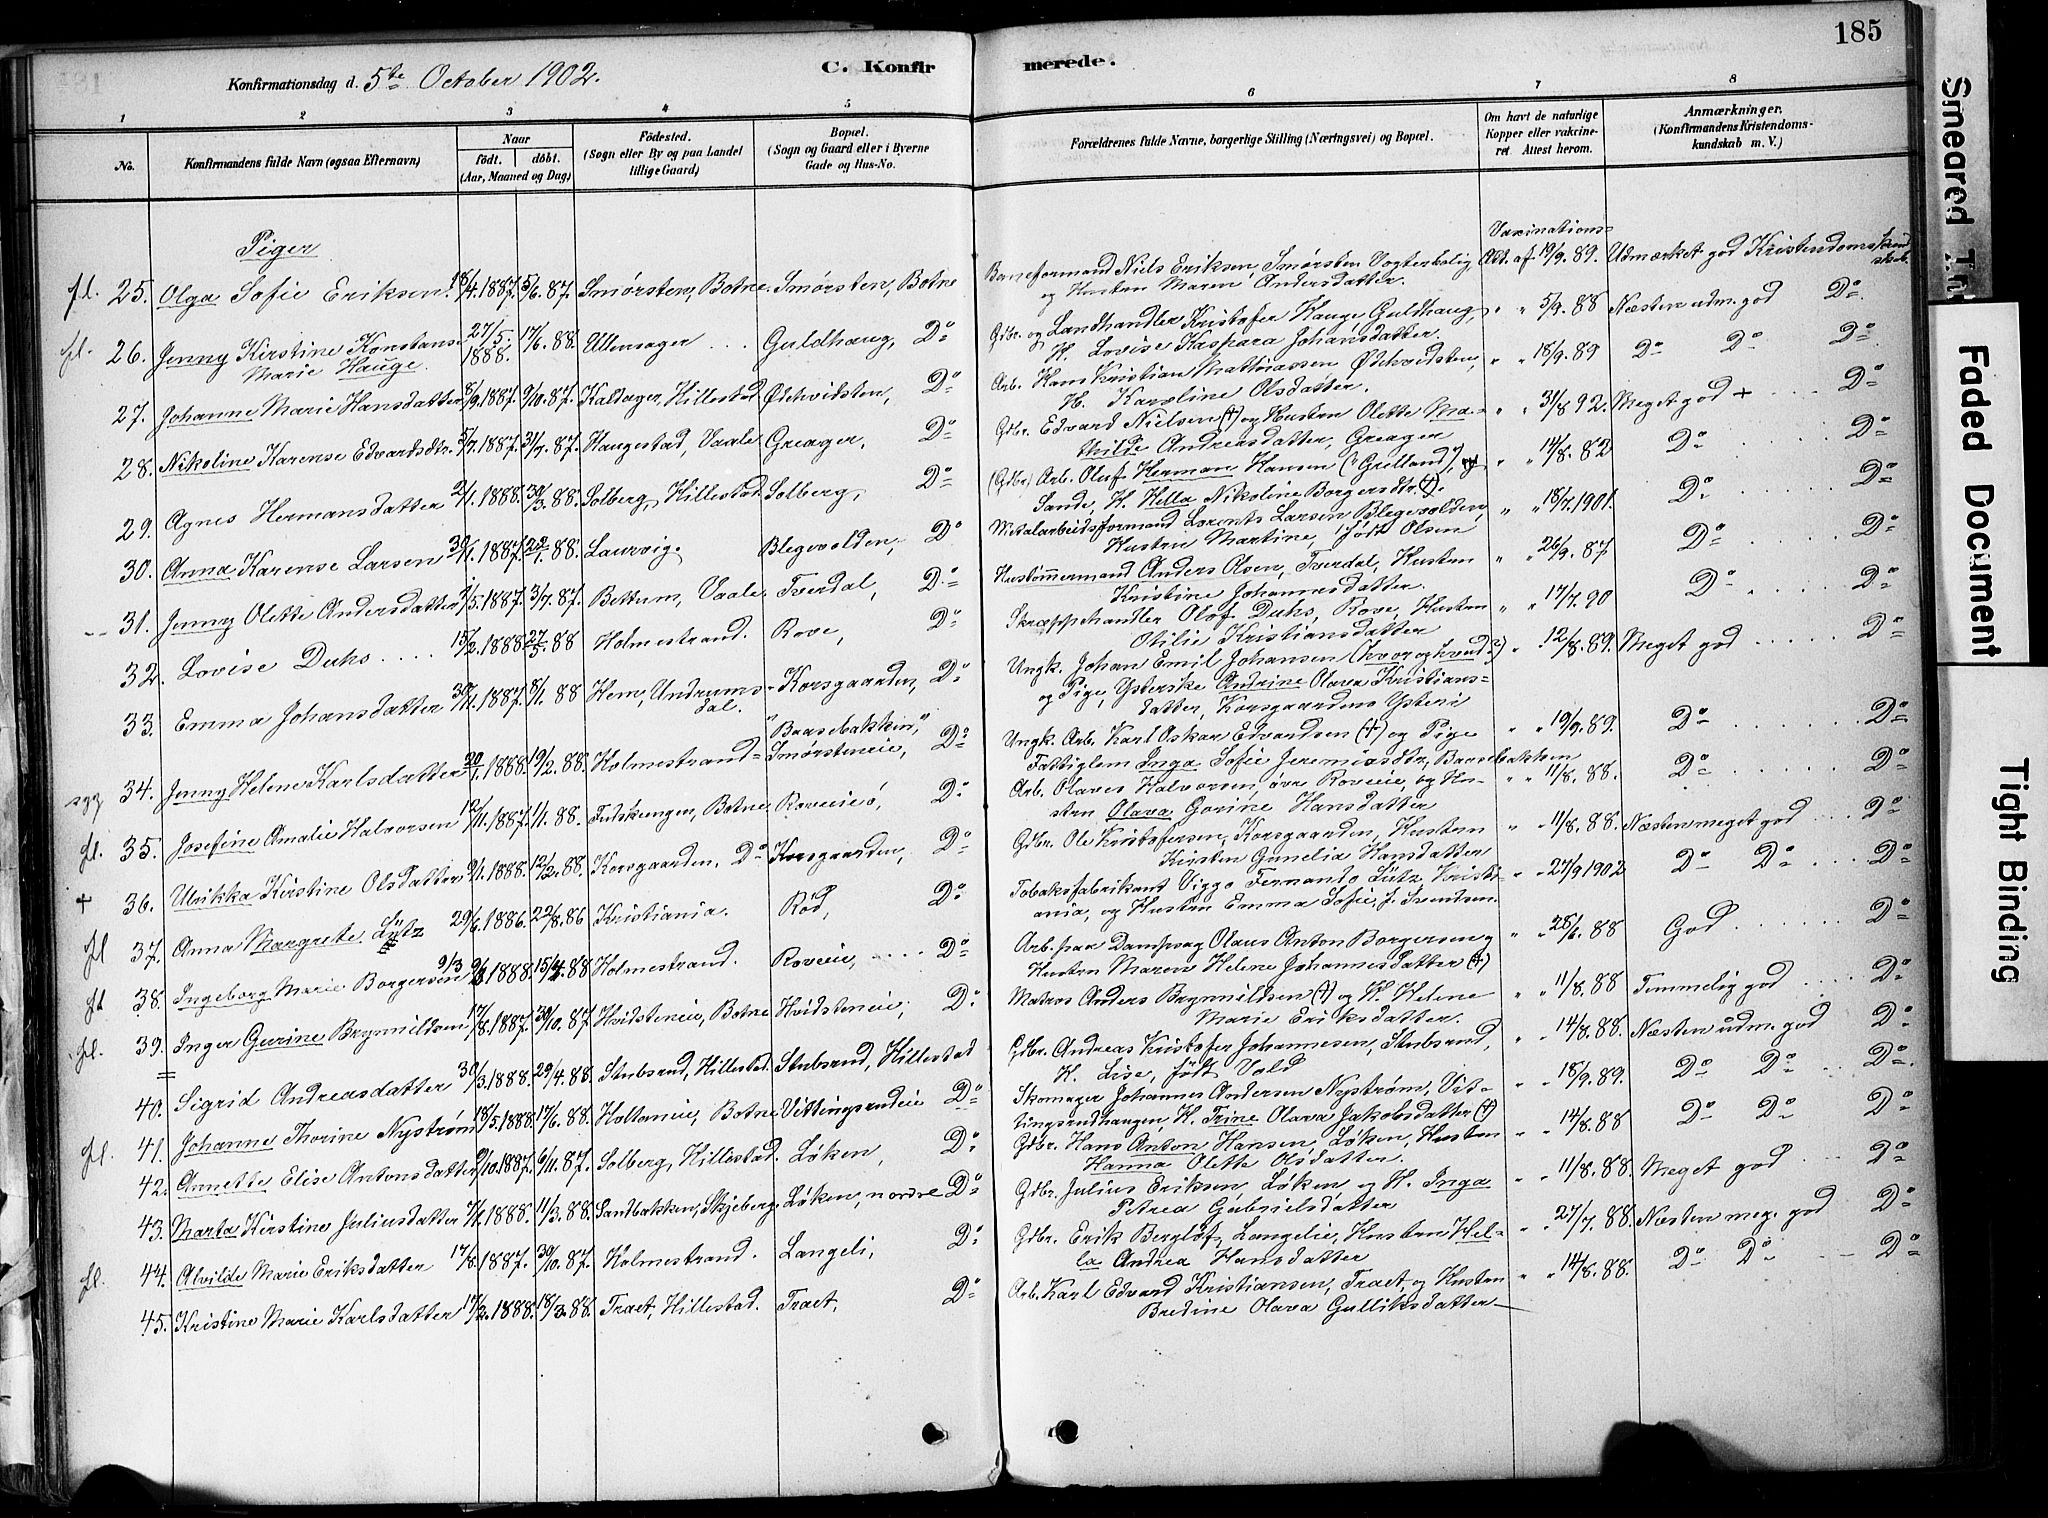 185
Konfirmationsdag d. 5te October 1902.
C. Konfirmerede.
1 2 3 4 5 6 7 8
No.
Konfirmandens fulde Navn (ogsaa Efternavn)
Naar født. døbt. (Aar, Maaned og Dag)
Födested. (Sogn eller By og paa Landet tillige Gaard)
Bopæl. (Sogn og Gaard eller i Byerne Gade og Hus-No.
Forældrenes fulde Navne, borgerlige Stilling (Næringsvei) og Bopæl.
Om havt de naturlige Kopper eller vakcineret Attest herom.
Anmærkninger. (Konfirmandens Kristendomskundskab m. V.)
Piger
Vaxinations-
fl. 25. Olga Sofie Eriksen. 18/4.1887. 5/6.87. Smørsten, Botne. Smørsten, Botne Baneformand Niels Eriksen, Smørsten Vogterbolig Att. af 19/9.89. Udmærket god Kristendomskundskab.
og Hustru Maren Andersdatter.
fl. 26. Jenny Kirstine Konstanse 27/5. 1888. 17/6.88. Ullensager ... Guldhaug, Do Gdbr. og Landhandler Kristofer Hauge Guldhaug, " " 5/9.88 Næsten udm. god Do
Marie Hauge. H. Lovise Kaspara Johansdatter.
27. Johanne Marie Hansdatter 8/9.1887. 9/10.87. Kaldager, Hillestad Ødehvidsten, Do Arb. Hans Kristian Mathiassen Ødehvidsten, " " 18/9.89 Do Do Do
H. Karoline Olsdatter.
28. Nikoline Karense Edvardsdtr. 5/7.1887. 31/7.87. Haugestad, Vaale Greager, Do Gdbr. Edvard Nielsen (†) og Hustru Olette Ma- " " 31/8.92. Meget god + ... Do
thilde Andreasdatter, Greager
29. Agnes Hermansdatter 2/1.1888. 30/3.88. Solberg, Hillestad Solberg, Do (Gdbr.) Arb. Oluf Herman Hansen ("Grilland"), " " 14/8.82 Do ... Do
Sande, H. Hella Nikoline Borgersdtr. (†).
30. Anna Karense Larsen 30/11.1887. 22/1.88. Laurvig. Blegevolden, Do Metalarbeidsformand Lorents Larsen Blegevolden, " " 18/7.1901. Do ... Do
Hustru Martine, født Olsen
31. Jenny Olette Andersdatter 2/5.1887. 3/7.87. Bettum, Vaale. Tverdal, Do Hustømmermand Anders Olsen, Tverdal, Hustru " " 26/9.87 Do ... Do
Kristine Johannesdatter.
32. Lovise Duhs .... 15/2.1888 27/5.88 Holmestrand. Rove, Do Skræpphandler Olof Duhs, Rove, Hustru " " 17/7.90 Do ... Do
Otilie Kristiansdatter
33. Emma Johansdatter 30/11.1887. 8/1.88 Hem, Undrumsdal. Korsgaarden, Do Ungk. Johan Emil Johansen (hvor og hvad?) " 12/8.89. Meget god ..... Do
og Pige, Ysterske Andrine Olava Kristians-
datter, Korsgaardens Ysteri
34. Jenny Helene Karlsdatter 20/1.1888. 19/2.88. Holmestrand "Baasebakken", Smørsteneie, Do Ungk. Arb. Karl Oskar Edvardsen (†) og Pige " " 19/9.89. Do ... Do
Fattiglem Inga Sofie Jeremiasdtr., Baasebakken
fl. 35. Josefine Amalie Halvorsen 12/11.1887. 1/1.88. Fudskengen, Botne Roveieie, Do Arb. Olaves Halvorsen, øvre Roveeie, og Hu- " " 11/8.88. Do ... Do
stru Olava Gorine Hansdatter
† 36. Ulrikka Kirstine Olsdatter 9/1.1888. 12/2.88. Korsgaarden, Do Korsgaarden, Do Gdbr. Ole Kristofersen, Korsgaarden, Hustru " " 11/8.88. Næsten meget god ... Do
Kirsten Gunelia Hansdatter
fl 37. Anna Margrete Lütz 29/6.1886. 22/8.86 Kristiania. Rød, Do Tobaksfabrikant Viggo Fernando Lütz, Kristi- " " 27/9 1902 Do Do ... Do
ania, og Hustru Emma Sofie, f. Svendsen.
fl 38. Ingeborg Marie Borgersen 9/3 1888. 15/4.88 Holmestrand. Roveeie, .... Do Arb. paa Dampsag Olaus Anton Borgersen og " " 28/6.88 God. ... Do
Hustru Maren Helene Johannesdatter (†)
fl. 39. Inger Gurine Brynnildsen 17/8.1887. 30/10.87 Hvidsteneie, Botne Hvidsteneie, Do Matros Anders Brynnildsen (†) og H. Helene " " 11/8.88 Temmelig god ... Do
Marie Eriksdatter.
40. Sigrid Andreasdatter 30/3.1888. 29/4.88. Stubsrud, Hillestad. Stubsrud, Hillestad Gdbr. Andreas Kristofer Johannesen, Stubsrud, " " 14/8.88. Næsten udm. god Do
H. Lise, født Vold
fl. 41. Johanne Thorine Nystrøm 18/5.1888. 17/6.88. Holtaneie, Botne Vittingsrudeie Do Skomager Johannes Andersen Nystrøm, Vit- " " 18/9.89. Do Do ... Do
tingsrudhaugen, H. Trine Olava Jakobsdatter (†)
42. Annette Elise Antonsdatter 9/10.1887. 6/11.87. Solberg, Hillestad. Løken, Do Gdbr. Hans Anton Hansen, Løken, Hustru " " 14/8.88 Do Do Do
Hanna Olette Olsdatter.
43. Marta Kirstine Juliusdatter 7/1.1888. 11/3.88. Sandbakken, Skjeberg. Løken, nordre Do Gdbr. Julius Eriksen, Løken og H. Inga " " 11/8.88. Meget god ... Do
Petrea Gabrielsdatter
fl. 44. Alvilde Marie Eriksdatter 17/8.1887. 30/10.87. Holmestrand. Langeli, Do Gdbr. Erik Bergløf, Langelie, Hustru Hel- " " 27/7.88. Næsten meg. god Do
la Andrea Hansdatter
45. Kristine Marie Karlsdatter 17/2.1888. 18/3.88. Traet, Hillestad. Traet, Do Arb. Karl Edvard Kristiansen, Traet, og Hustru " " 14/8.88. Do Do — Do
Bredine Olava Gulliksdatter
Smeared
Faded Document
Tight Binding